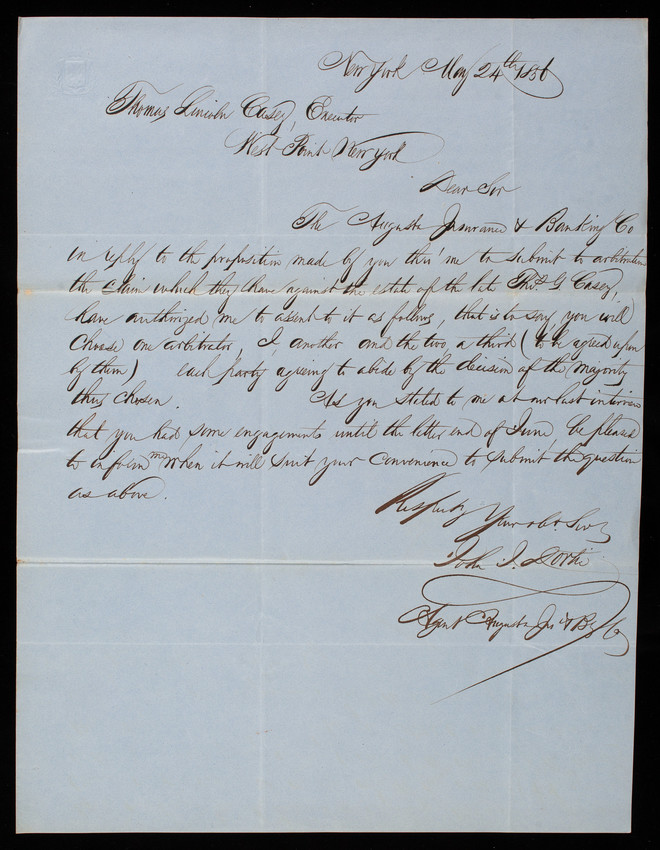 New York May 24th 1856
Thomas Lincoln Casey, Executor
West Point New York
Dear Sir
The Augusta Insurance & Banking Co
in reply to the proposition made by you thro' me to submit to arbitration
the claim which they have against the estate of the late Thos G Casey,
have authorized me to assent to it as follows, that is to say, you will
choose one arbitrator, I, another and the two, a third (to be agreed upon
by them) each party agreeing to abide by the decision of the majority
thus chosen. As you stated to me at our last interview
that you had some engagements until the latter end of June, be pleased
to inform me when it will suit your convenience to submit the question
as above.
Respectfy Your obt. Servt
John J.
Agent Augusta Ins & Bkg Co